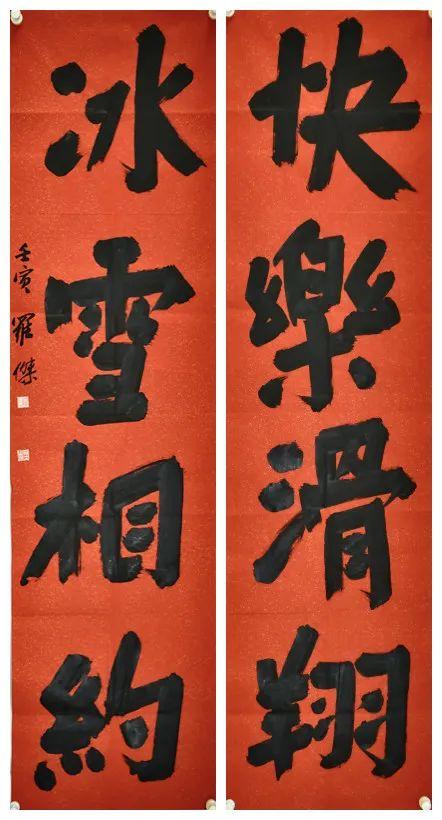 快樂滑翔
冰雪相約
壬寅 羅傑